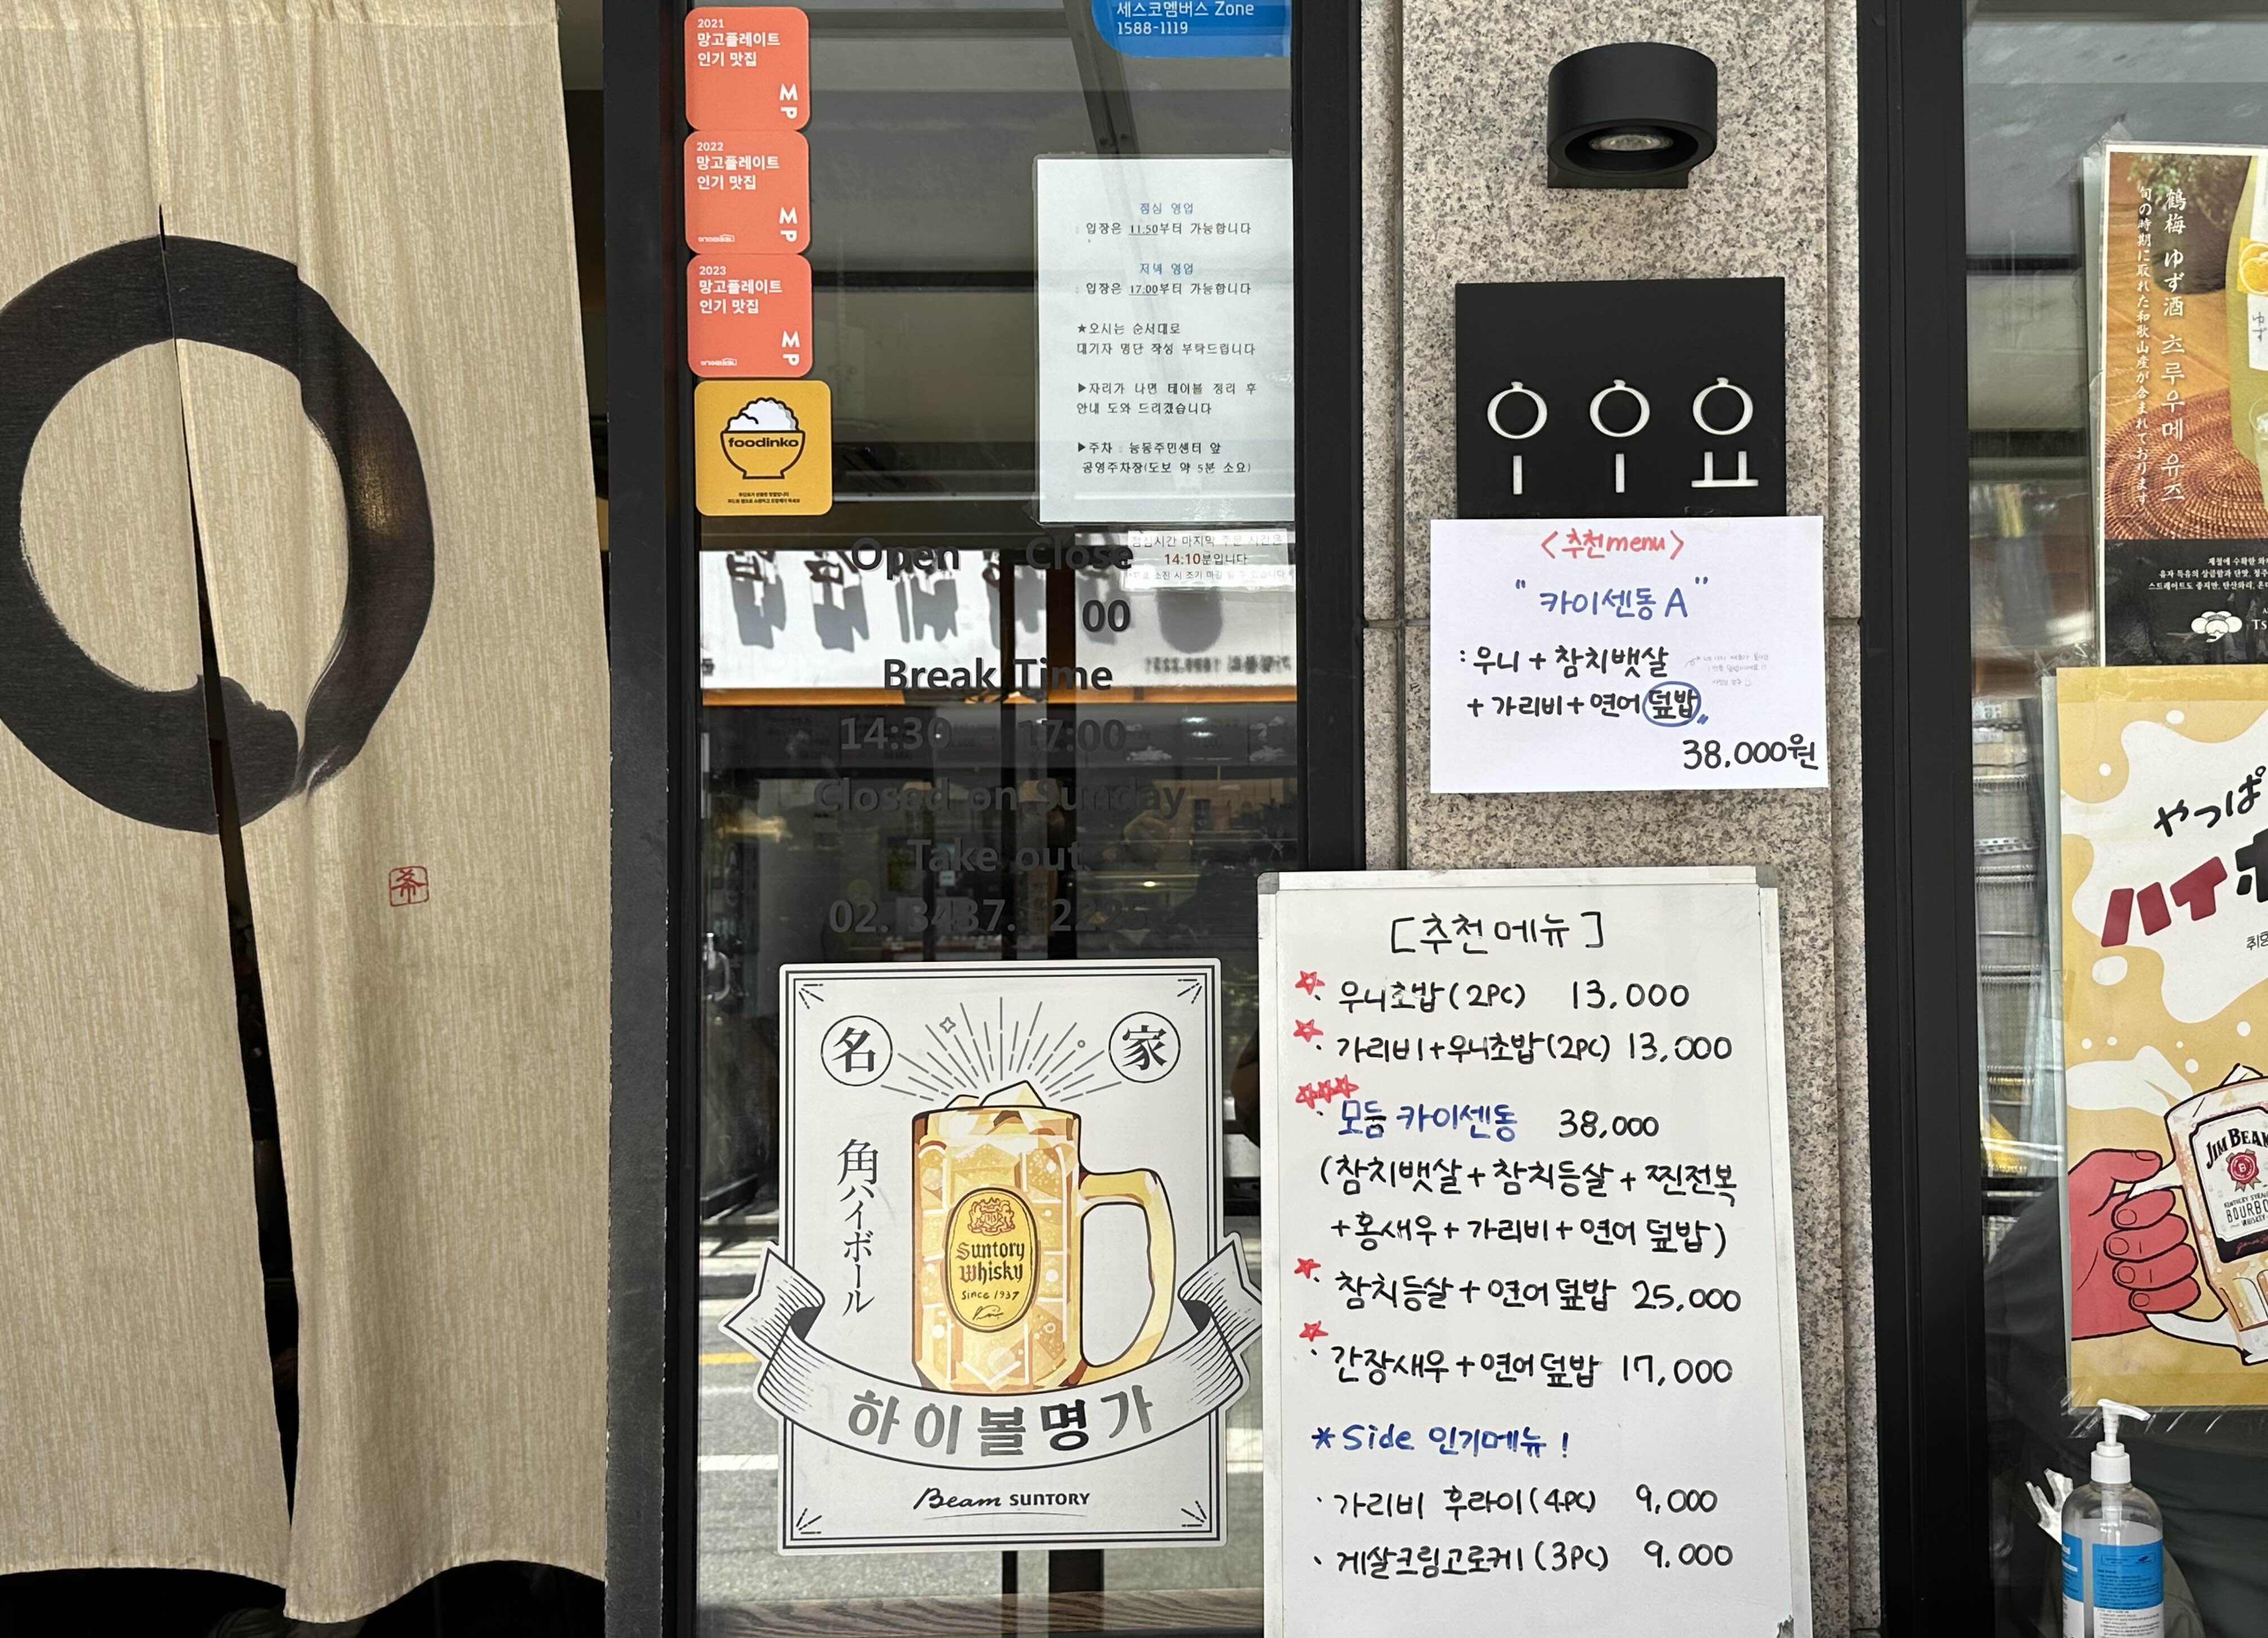 2021
망고플레이트
인기 맛집
MP
2022
망고플레이트
인기 맛집
MP
2023
망고플레이트
인기 맛집
MP
foodinko
세스코멤버스 Zone
1588-1119
점심 영업
: 입장은 11.50부터 가능합니다
저녁 영업
: 입장은 17:00부터 가능합니다
★오시는 순서대로
대기자 명단 작성 부탁드립니다
▶자리가 나면 테이블 정리 후
안내 도와 드리겠습니다
▶주차 : 능동주민센터 앞
공영주차장(도보 약 5분 소요)
점심시간 마지막 주문 시간은
14:10분입니다
Open Close
00
Break Time
14:30 17:00
Closed on Sunday
Take out
02. 3437.
名 家
角ハイボール
Suntory
Whisky
Since 1937
하이볼명가
Beam SUNTORY
우우요
<추천menu>
"카이센동 A"
: 우니 + 참치뱃살
+ 가리비 + 연어 덮밥"
38,000원
[추천메뉴]
우니초밥(2PC) 13,000
가리비+우니초밥(2PC) 13,000
모듬 카이센동 38,000
(참치뱃살 + 참치등살 + 찐전복
+홍새우 + 가리비 + 연어 덮밥)
참치등살 + 연어덮밥 25,000
간장새우+연어덮밥 17,000
* Side 인기메뉴!
· 가리비 후라이(4PC) 9,000
· 게살크림고로케(3PC) 9,000
鶴梅 ゆず酒 츠루우메 유즈
旬の時期に取れた和歌山産が含まれております
やっぱ
ハイボ
JIM BEAM
BOURBO